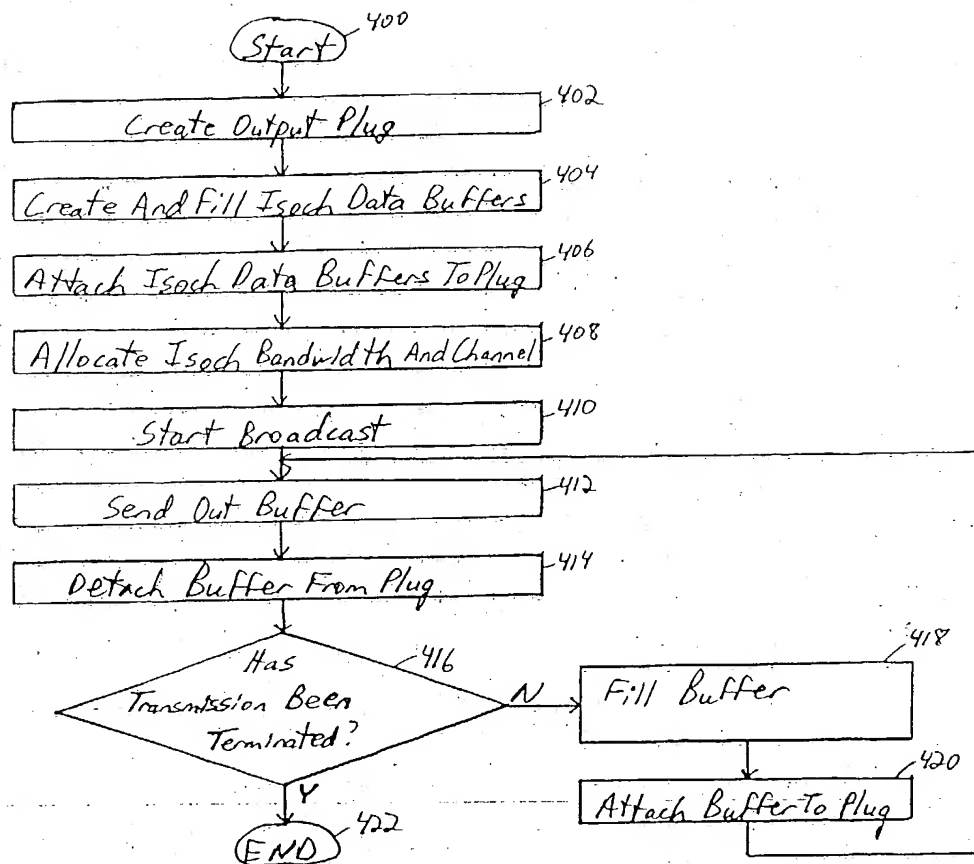 400
Start
402
Create Output Plug
404
Create And Fill Isoch Data Buffers
406
Attach Isoch Data Buffers To Plug
408
Allocate Isoch Bandwidth And Channel
410
Start Broadcast
412
Send Out Buffer
414
Detach Buffer From Plug
416
Has
Transmission Been
Terminated?
N
418
Fill Buffer
420
Attach Buffer To Plug
Y
422
END